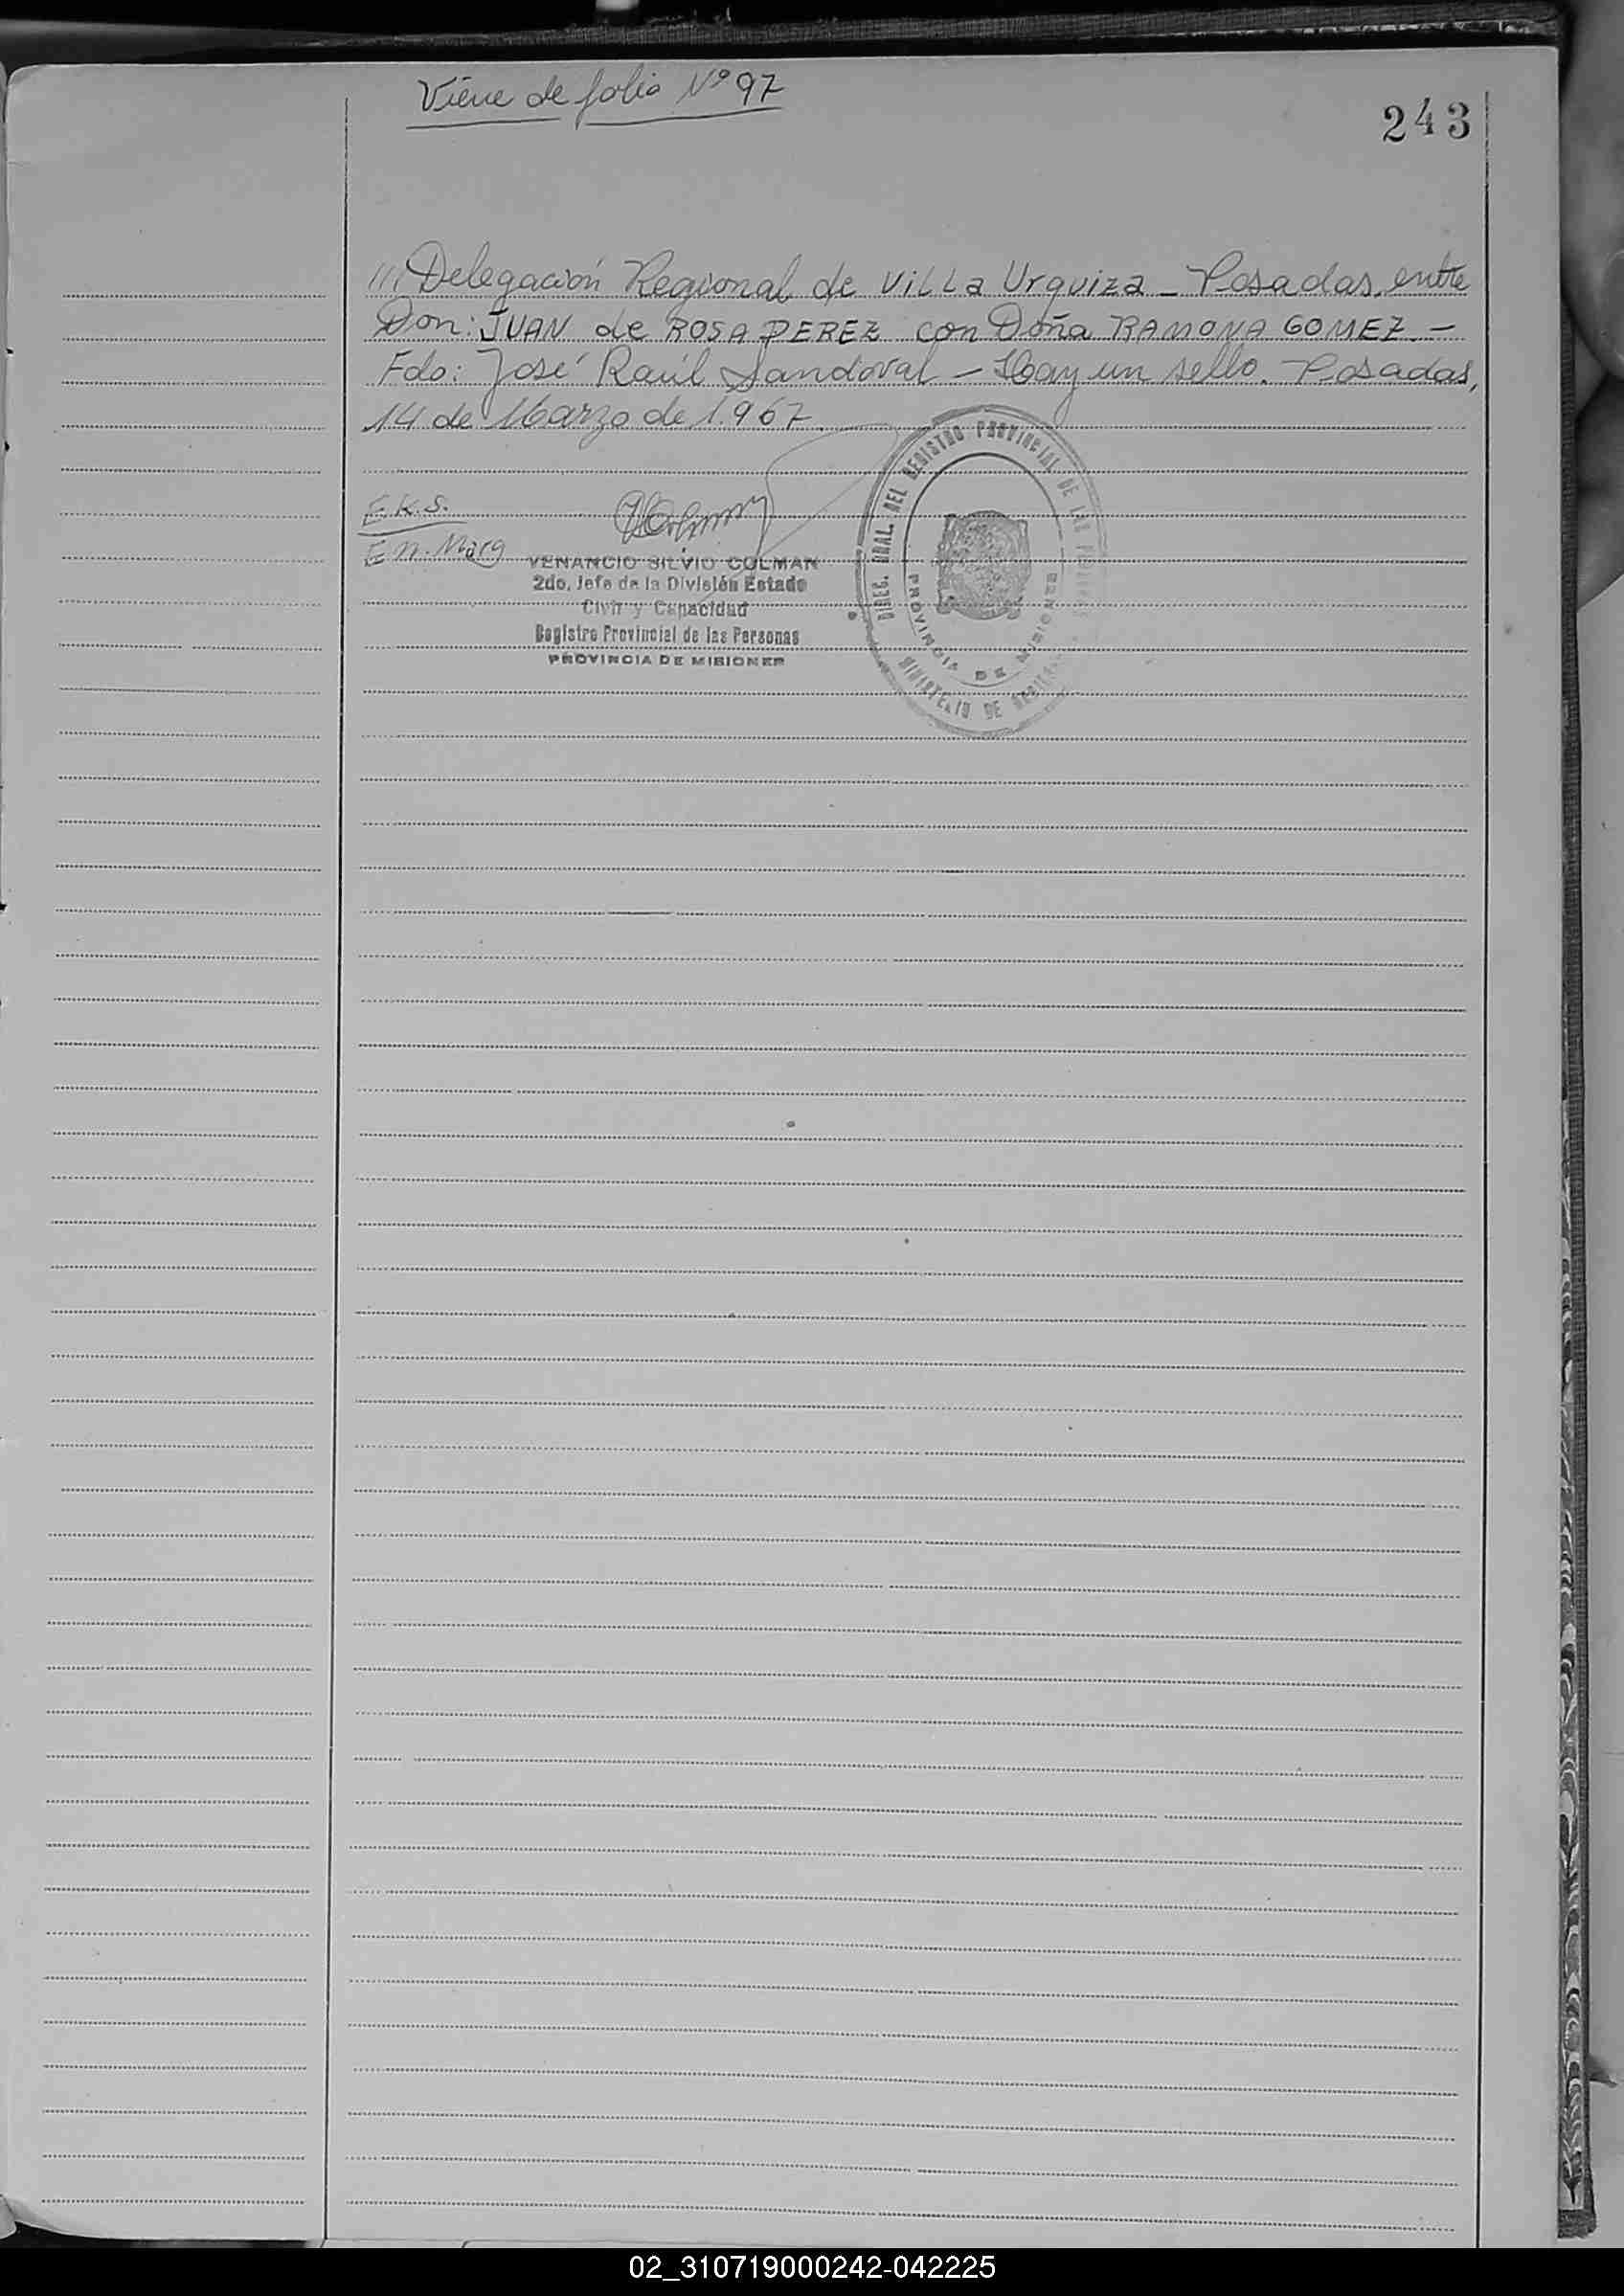 Viene de folio Nº 97
243
/// Delegación Regional de Villa Urquiza - Posadas, entre
Don: JUAN de ROSA PEREZ con Doña RAMONA GOMEZ.-
Fdo: José Raúl Sandoval - Hay un sello. Posadas,
14 de Marzo de 1.967.
E.K.S.
VENANCIO SILVIO COLMAN
2do. Jefe de la División Estado
Civil y Capacidad
Registro Provincial de las Personas
PROVINCIA DE MISIONES
DIREC. GRAL. DEL REGISTRO PROVINCIAL DE LAS
PROVINCIA DE MISIONES
MINISTERIO DE
02_310719000242-042225